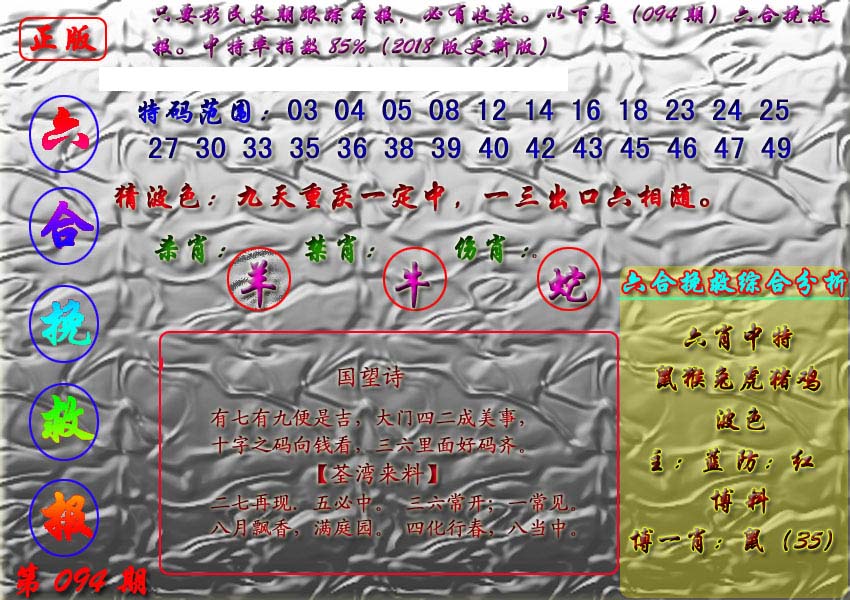 正版
只要彩民长期跟踪本报，必有收获。以下是（094期）六合挽救
报。中特率指数85%（2018版更新版）
六
合
挽
救
报
第094期
特码范围：03 04 05 08 12 14 16 18 23 24 25
27 30 33 35 36 38 39 40 42 43 45 46 47 49
猜波色：九天重庆一定中，一三出口六相随。
杀肖：羊 禁肖：牛 伤肖：。蛇
国望诗
有七有九便是吉，大门四二成美事，
十字之码向钱看，三六里面好码齐。
【荃湾来料】
二七再现．五必中。 三六常开；一常见。
八月飘香，满庭园。 四化行春，八当中。
六合挽救综合分析
六肖中特
鼠猴兔虎猪鸡
波色
主：蓝防：红
博料
博一肖：鼠（35）